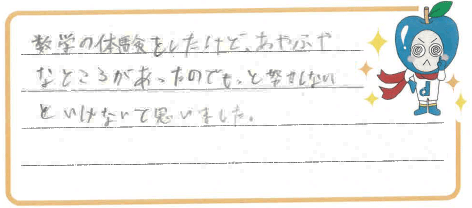 数学の体験をしたけど、あやふや
なところがあったのでもっと努力しない
といけないて思いました。
d